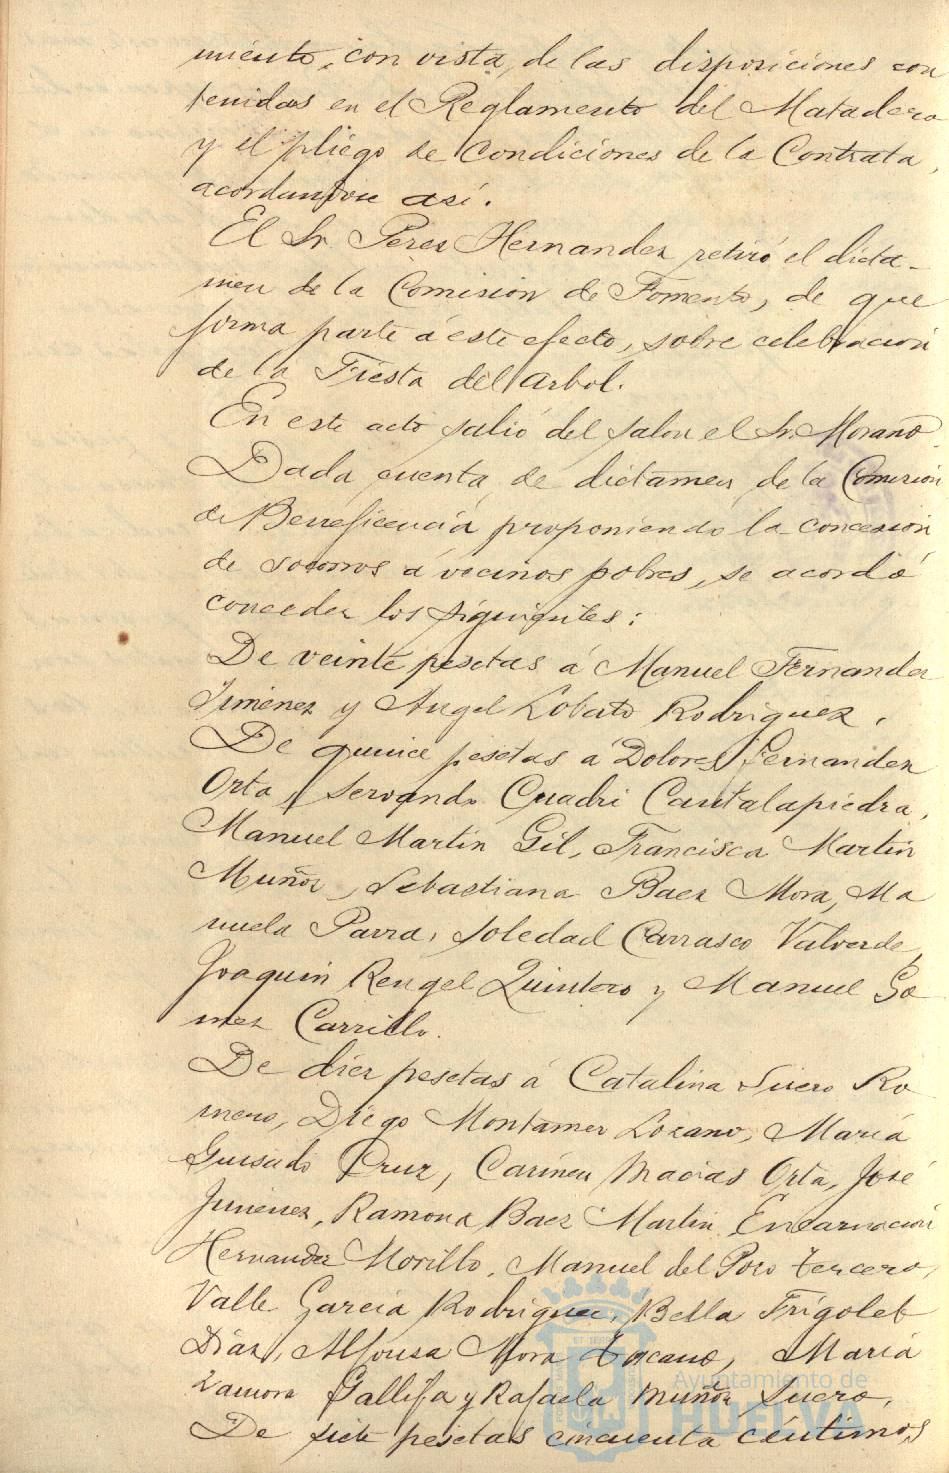 miento, con vista, de las disposiciones con
tenidas en el Reglamento del Matadero
y el pliego de Condiciones de la Contrata,
acordandose así.
El Sr. Perez Hernandez retiró el dicta-
men de la Comision de Fomento, de que
forma parte á este efecto, sobre celebracion
de la Fiesta del Arbol.
En este acto salió del salon el Sr. Morano.
Dada cuenta de dictamen de la Comision
de Beneficencia proponiendo la concesion
de socorros á vecinos pobres, se acordó
conceder los siguientes:
De veinte pesetas á Manuel Fernandez
Jimenez y Angel Lobato Rodriguez.
De quince pesetas á Dolores Fernandez
Orta, Servando Cuadri Cantalapiedra,
Manuel Martin Gil, Francisca Martin
Muñoz, Sebastiana Baez Mora, Ma
nuela Parra, Soledad Carrasco Valverde,
Joaquin Rengel Quintero y Manuel Go
mez Carrillo.
De diez pesetas á Catalina Suero Ro
mero, Diego Montaner Lozano, María
Guisado Cruz, Carmen Macias Orta, José
Jimenez, Ramona Baez Martin, Encarnacion
Hernandez Morillo, Manuel del Pozo tercero,
Valle Garcia Rodriguez, Bella Frigolet
Diaz, Alfonsa Mora Lozano, María
Zamora Gallifa y Rafaela Muñoz Suero.
De siete pesetas cincuenta céntimos,
Ayuntamiento de
HUELVA